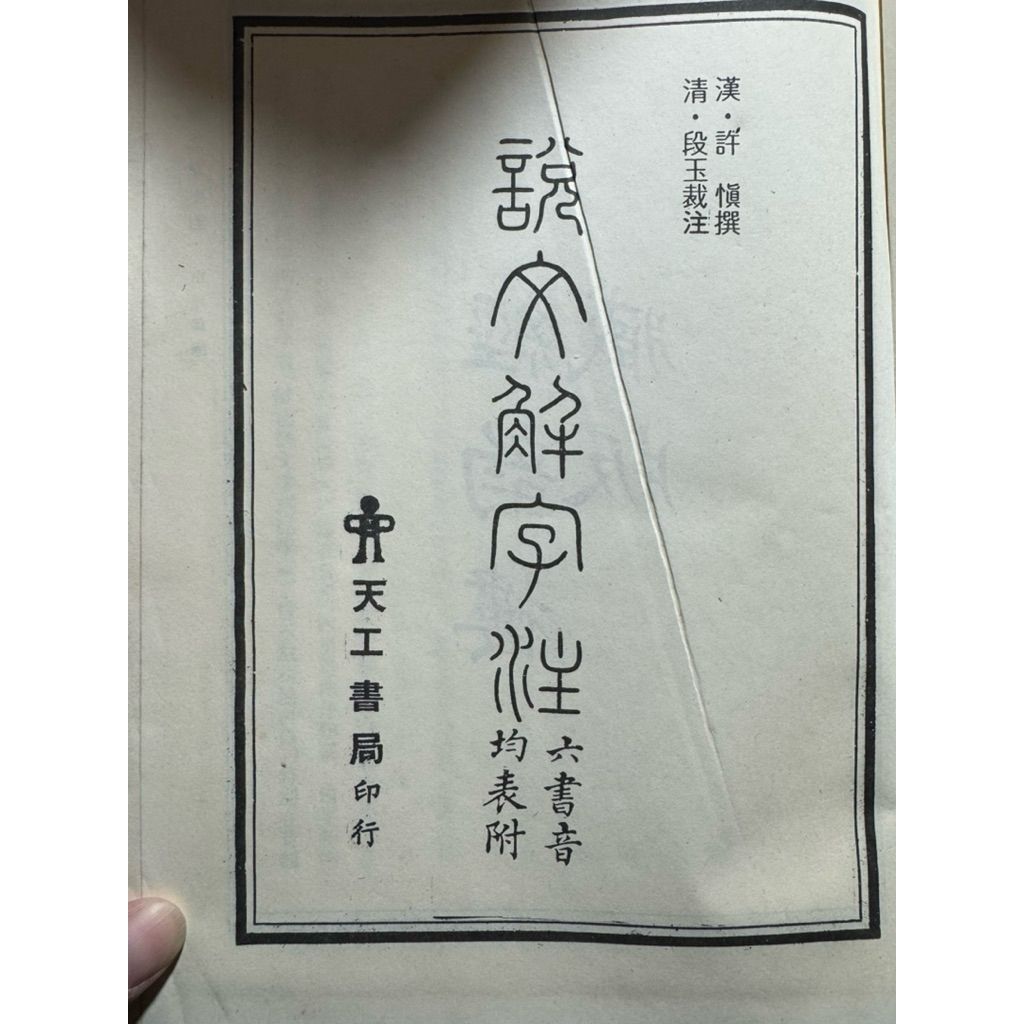 漢・許 愼撰
清・段玉裁注
說文解字注
六書音
均表附
天工書局印行